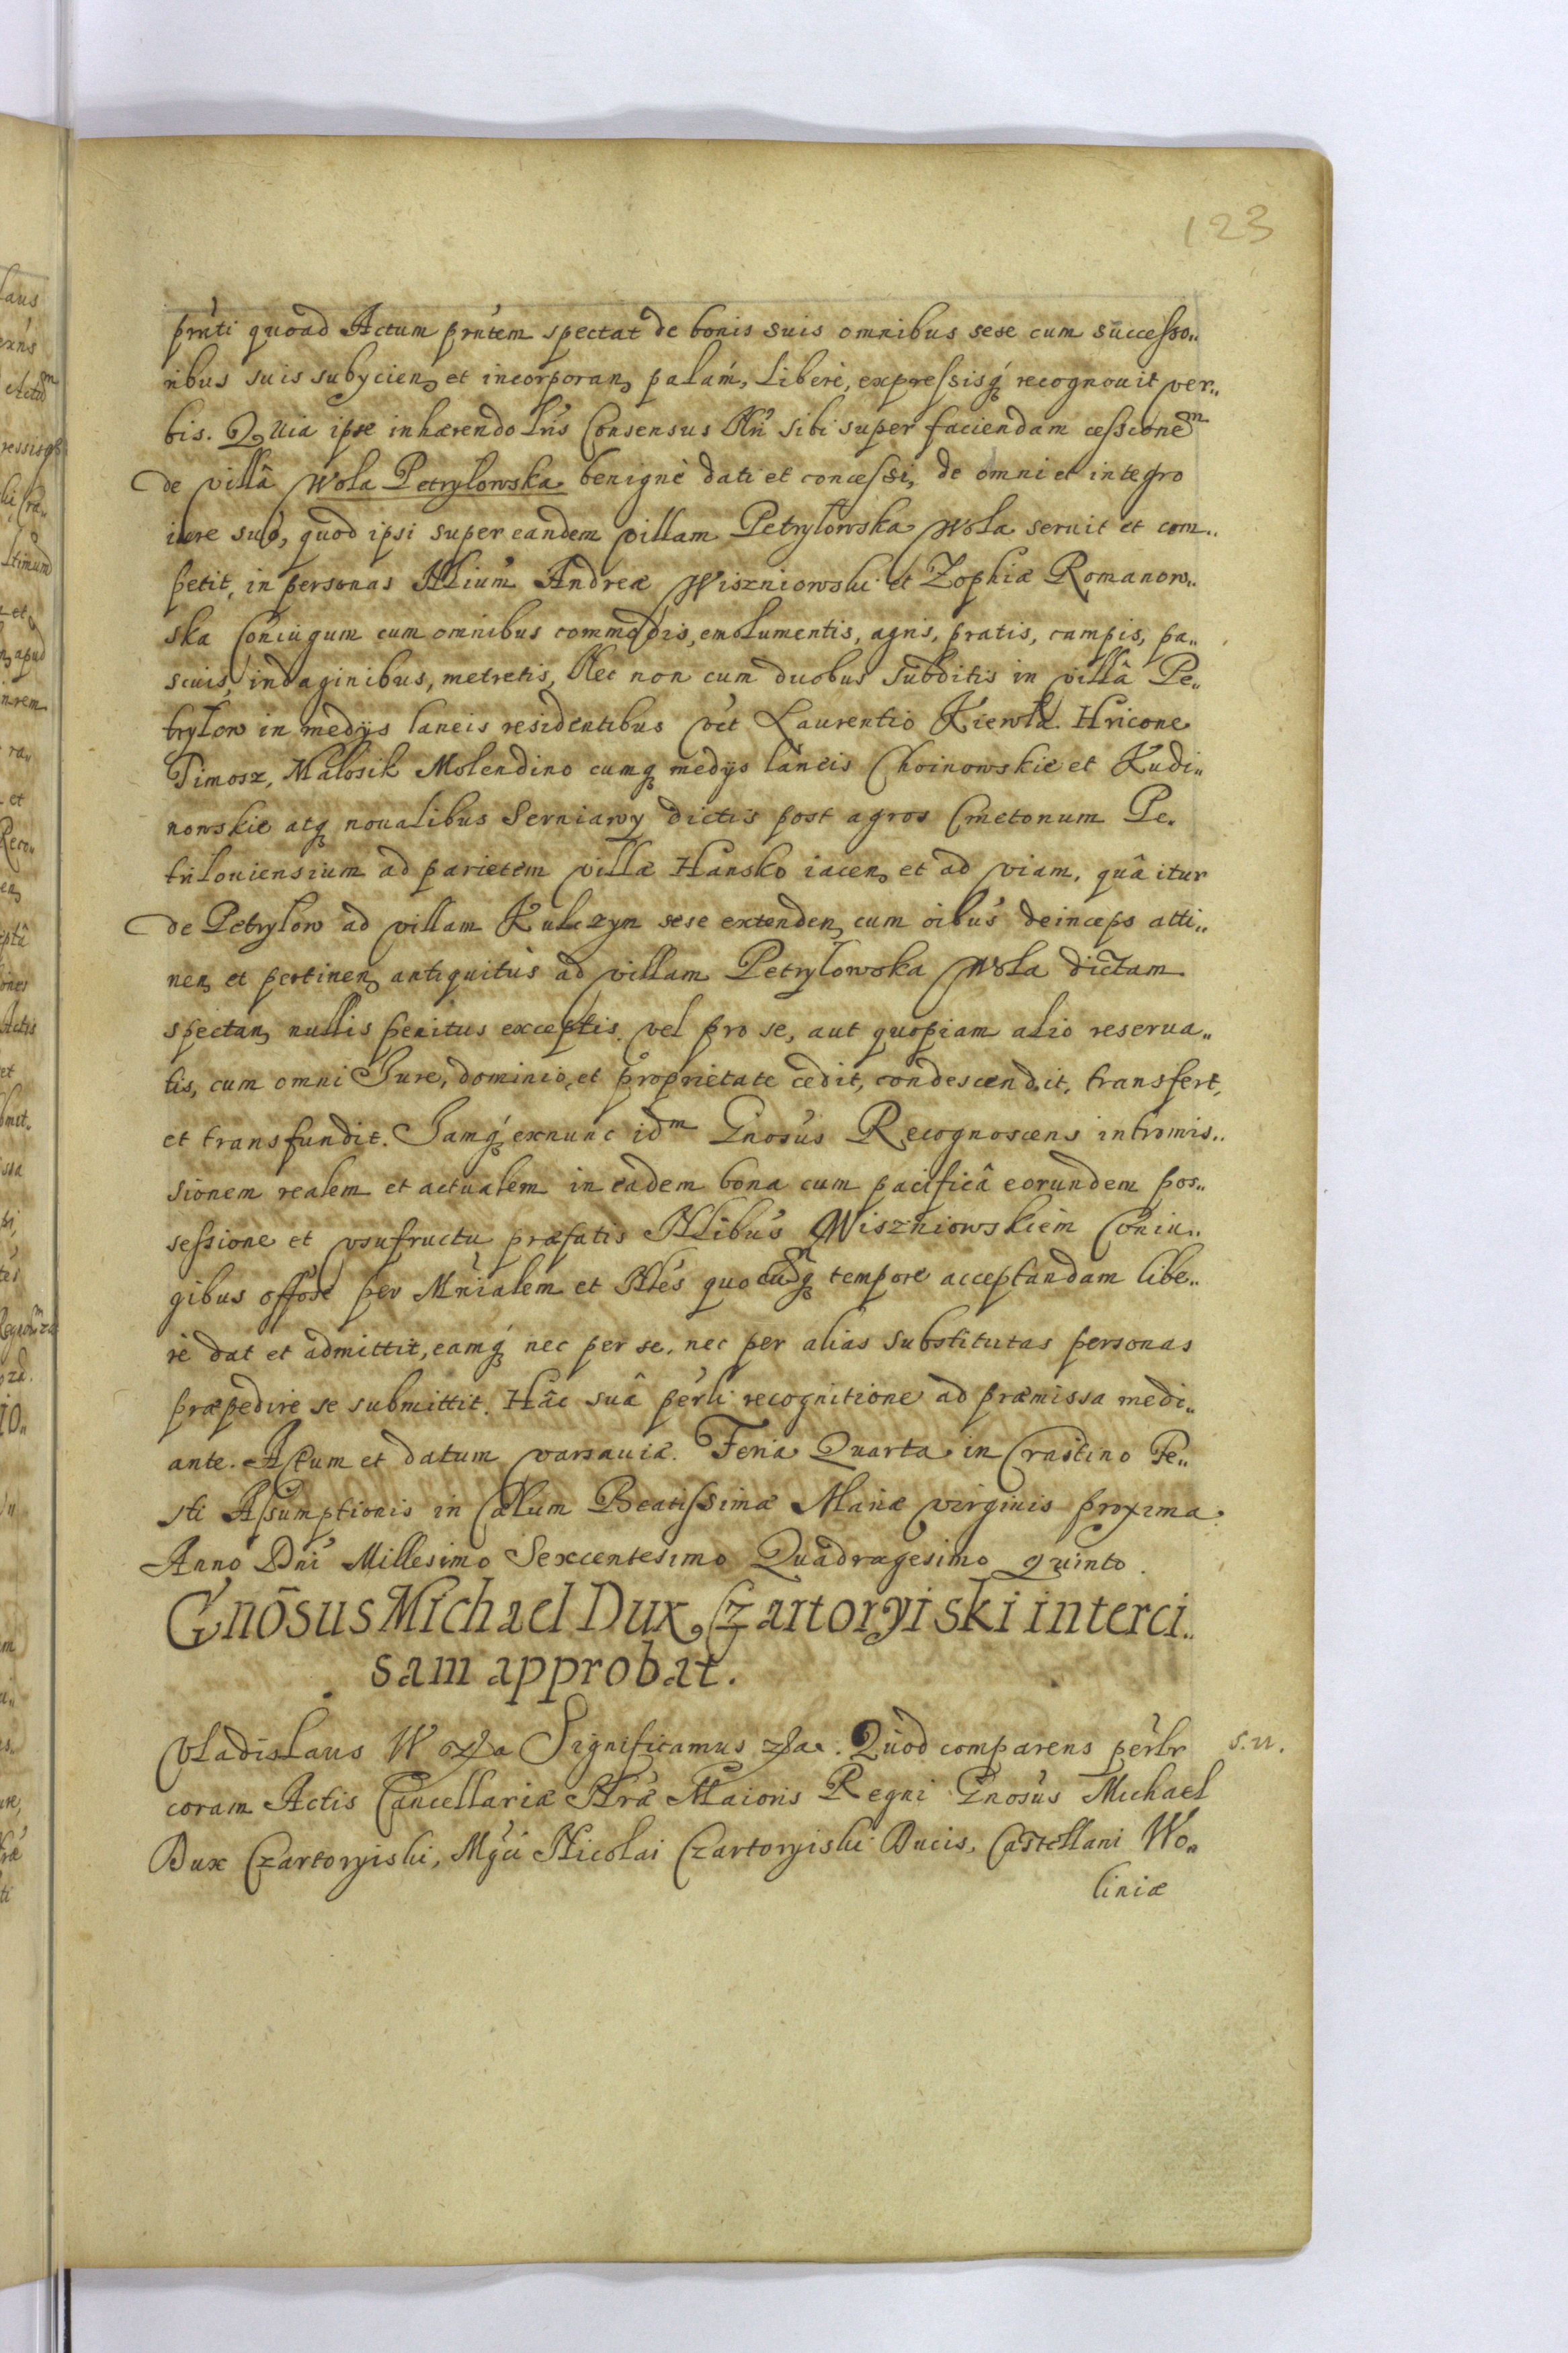 123
prńti quoad Actum prńtem spectat de bonis suis omnibus sese cum successo„
ribus suis subycien, et incorporan, palam, Liberè, expressisq́ recognouit ver„
bis. Quia ipse inhærendo Lrís Consensus Nrí sibi super faciendam cessionem
de villâ Wola Petrylowska benignè dati et concessi, de omni et integro
iure suo, quod ipsi super eandem villam Petrylowska Wola seruit et com„
petit, in personas Nlium Andreæ Wiszniowski et Zophiæ Romanow„
ska Coniugum cum omnibus commodis, emolumentis, agris, pratis, campis, pa„
scuis, indaginibus, metretis, Nec non cum duobus subditis in villâ Pe„
trylow in medÿs laneis residentibus vet Laurentio Kiewla Hricone
Timosz, Malosik Molendino cumq medÿs laneis Choinowskie et Kudi„
nowskie atq noualibus Serniawy dictis post agros Cmetonum Pe„
triloviensium ad parietem villæ Hansko iacen, et ad viam, quâ itur
de Petrylow ad villam Kulczyn sese extenden, cum oibus deinceps atti„
nen, et pertinen, antiquitùs ad villam Petrylowska Wola dictam
spectan, nullis penitus exceptis vel pro se, aut quopiam alio reserua„
tis, cum omni Jure, dominio, et proprietate cedit, condescendit, transfert,
et transfundit. Jamq́ exnunc idm Gnosus Recognoscens intromis„
sionem realem et actualem in eadem bona cum pacificâ eorundem pos„
sessione et vsufructu præfatis Nlibus Wiszniowskiem Coniu„
gibus offose per Mnialem et Nles quocumq tempore acceptandam libe„
rè dat et admittit, eamq́ nec per se, nec per alias substitutas personas
præpedire se submittit. Hâc suâ pérli recognitione ad præmissa medi„
ante. Actum et datum varsauiæ. Feria Quarta in Crastino Fe„
sti Assumptionis in Cœlum Beatissimæ Mariæ virginis proxima.
Anno Dni Millesimo Sexcentesimo Quadragesimo quinto.
Gnõsus Michael Dux Czartoryiski interci„
sam approbat.
Vladislaus IV ozfa Significamus zfa. Quod comparens pérlr
s. n.
coram Actis Cancellariæ Nræ Maioris Regni Gnosus Michael
Dux Czartoryiski, Mgci Nicolai Czartoryiski Ducis, Castellani Wo„
liniæ